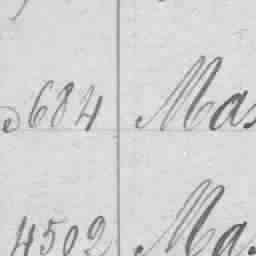 684 Mas
4502 Ma